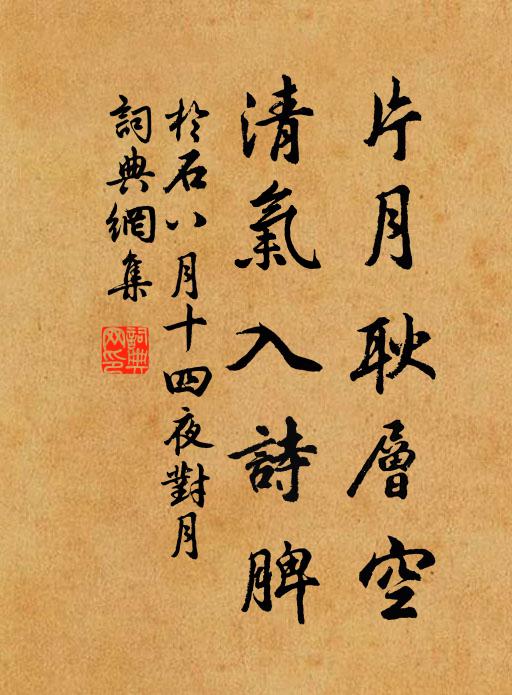 片月耿層空
清氣入詩脾
於石八月十四夜對月
詞典網集
詞典網印